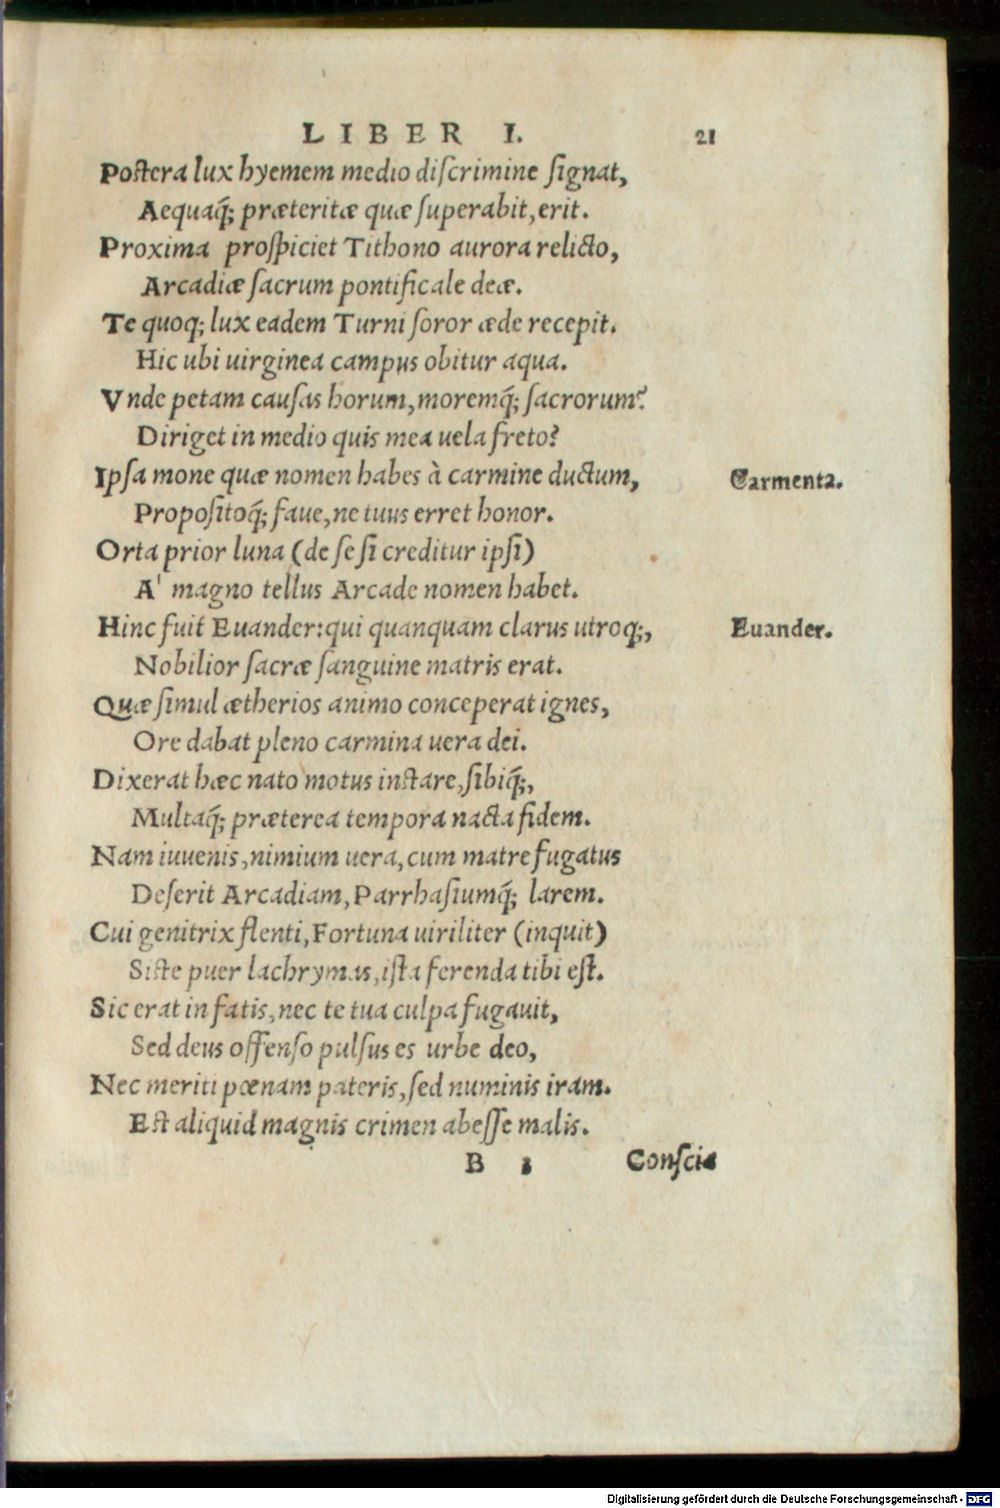 LIBER I. 21
Postera lux hyemem medio discrimine signat,
Aequaq́; præteritæ quæ superabit, erit.
Proxima prospiciet Tithono aurora relicto,
Arcadiæ sacrum pontificale deæ.
Te quoq; lux eadem Turni soror æde recepit.
Hic ubi uirginea campus obitur aqua.
Vnde petam causas horum, moremq́; sacrorum?
Diriget in medio quis mea uela freto?
Ipsa mone quæ nomen habes à carmine ductum, Carmenta.
Propositoq́; faue, ne tuus erret honor.
Orta prior luna (de se si creditur ipsi)
A' magno tellus Arcade nomen habet.
Hinc fuit Euander: qui quanquam clarus utroq;, Euander.
Nobilior sacræ sanguine matris erat.
Quæ simul ætherios animo conceperat ignes,
Ore dabat pleno carmina uera dei.
Dixerat hæc nato motus instare, sibiq́;,
Multaq́; præterea tempora nacta fidem.
Nam iuuenis, nimium uera, cum matre fugatus
Deserit Arcadiam, Parrhasiumq́; larem.
Cui genitrix flenti, Fortuna uiriliter (inquit)
Siste puer lachrymas, ista ferenda tibi est.
Sic erat in fatis, nec te tua culpa fugauit,
Sed deus offenso pulsus es urbe deo,
Nec meriti pœnam pateris, sed numinis iram.
Est aliquid magnis crimen abesse malis.
B 3 Conscia
Digitalisierung gefördert durch die Deutsche Forschungsgemeinschaft - DFG